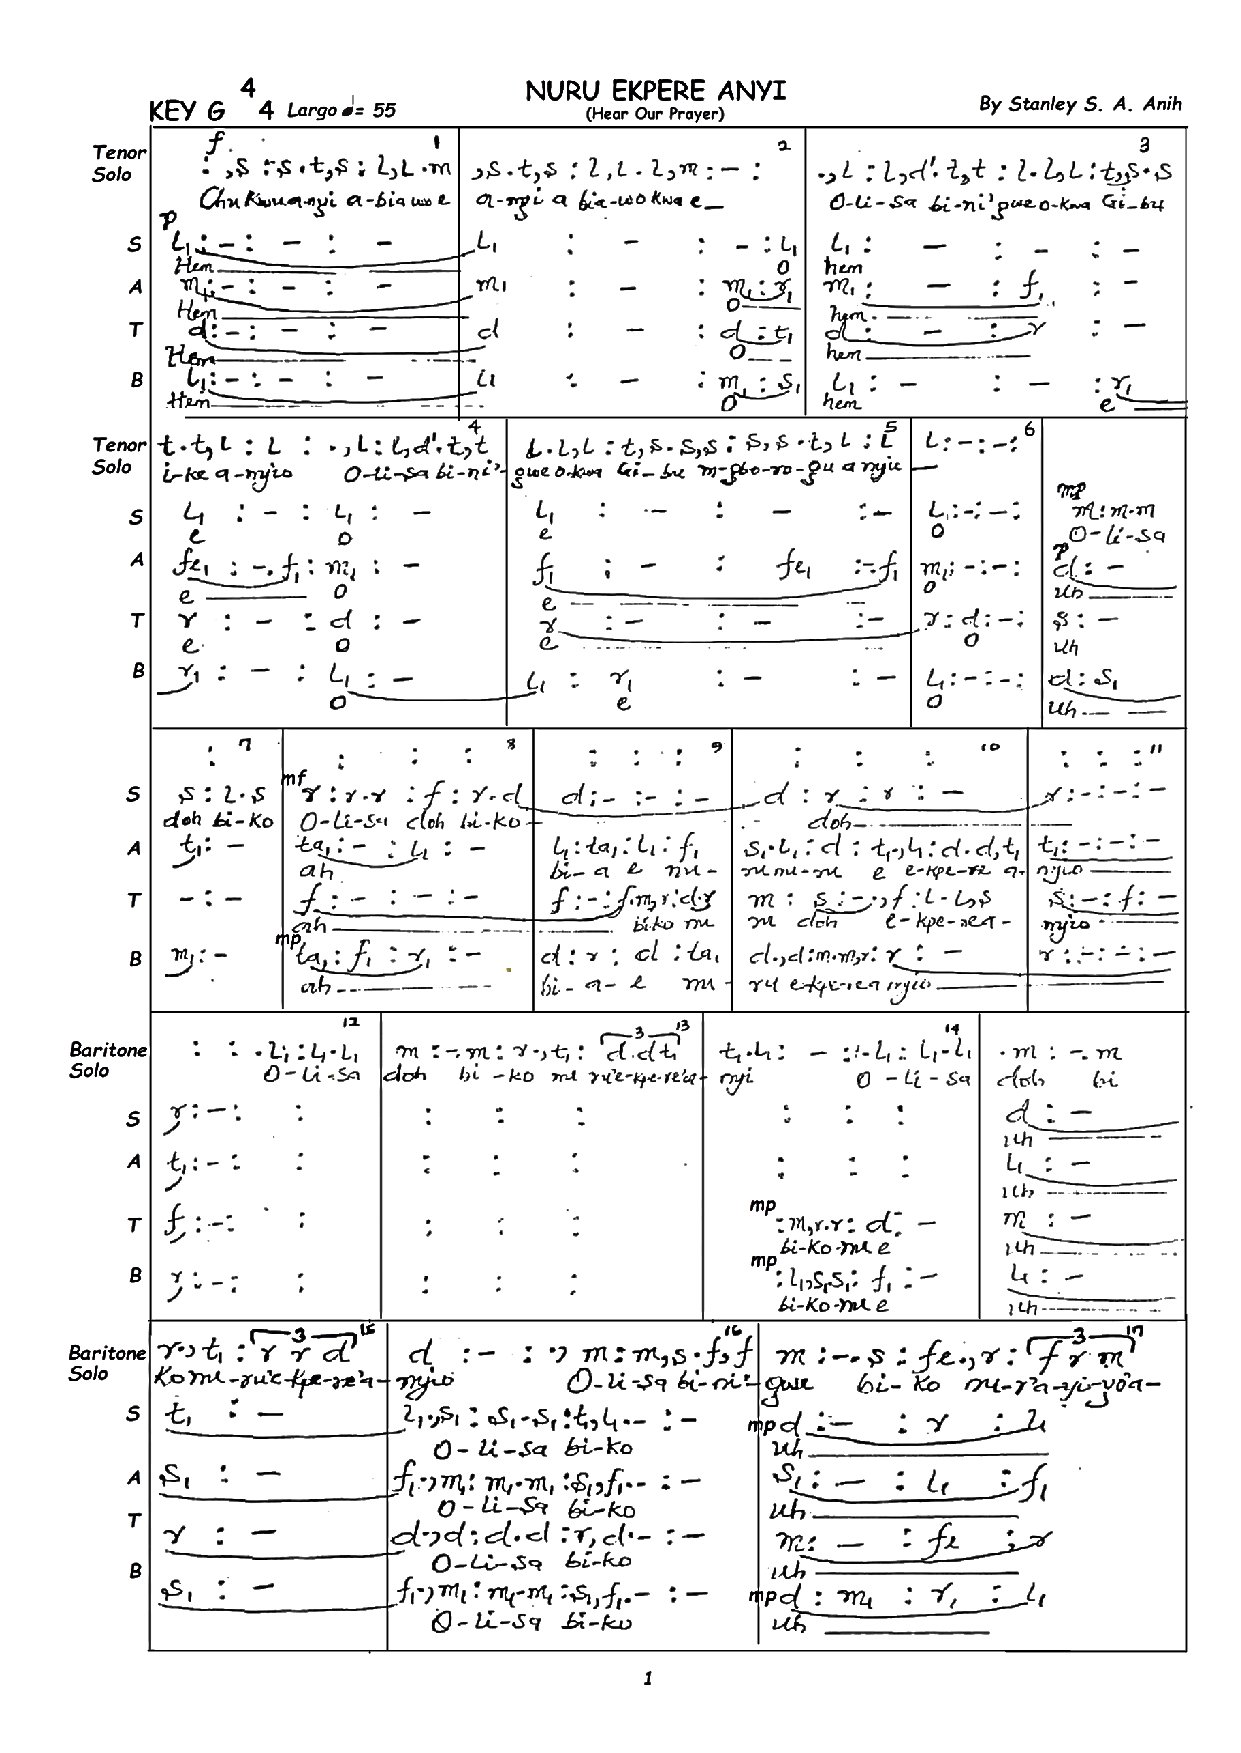 NURU EKPERE ANYI
(Hear Our Prayer)
KEY G 4 4 Largo ♩= 55
By Stanley S. A. Anih
1 2 3
Tenor Solo
f
: ,s :s.t,s : l,l.m ,s.t,s : l,l.l,m : - : .,l : l,d'.t,t : l.l,l : t,s.s
Chukwua-nyi a-biawo e a-nyi a bia-wo kwa e_ O-li-sa bi-ni'gwe o-kwa Gi-bu
p
S l₁ : - : - : - l₁ : - : - : l₁ l₁ : - : - : -
Hem O hem
A m₁ : - : - : - m₁ : - : m₁ : r₁ m₁ : - : f₁ : -
Hem O hem
T d : - : - : - d : - : d : t₁ d : - : r : -
Hem O hem
B l₁ : - : - : - l₁ : - : m₁ : s₁ l₁ : - : - : r₁
Hem O hem e
4 5 6
Tenor Solo
t.t,l : l : .,l : l,d'.t,t l.l,l : t,s.s,s : s,s.t,l : l l : - : - :
i-ke a-nyio O-li-sa bi-ni'- gwe o-kwa Gi-bu m-gbo-ro-gu a nyu
mp
S l₁ : - : l₁ : - l₁ : - : - : - l₁ : - : - : m : m.m
e o e O O-li-sa
p
A fe₁ : -.f₁ : m₁ : - f₁ : - : fe₁ : -.f₁ m₁ : - : - : d : -
e o e O uh
T r : - : d : - r : - : - : - r : d : - : s : -
e o e O uh
B r₁ : - : l₁ : - l₁ : r₁ : - : - l₁ : - : - : d : s₁
O e O uh
7 8 9 10 11
mf
S s : l.s r : r.r : f : r.d d : - : - : - d : r : r : - r : - : - : -
doh bi-ko O-li-sa doh bi-ko doh
A t₁ : - ta₁ : - : l₁ : - l₁ : ta₁ : l₁ : f₁ s₁.l₁ : d : t₁.,l₁ : d.d,t₁ t₁ : - : - : -
ah bi-a e nu- ru nu-ru e e-kpe-re a- nyio
T - : - f : - : - : - f : - : f.m,r : d,r m : s : -.,f : l.l,s s : - : f : -
ah biko nu ru doh e-kpe-rea- nyio
mp
B m₁ : - ta₁ : f₁ : r₁ : - d : r : d : ta₁ d.,d : m.m,r : r : - r : - : - : -
ah bi-a-e nu- ru e-kpe-rea nyio
12 13 14
Baritone Solo
: : .l₁ : l₁.l₁ m : -.m : r.,t₁ : d.dt₁ t₁.l₁ : - : -.l₁ : l₁.l₁ .m : -.m
3
O-li-sa doh bi-ko nu ru'e-kpe-re'a- nyi O-li-sa doh bi
S r : - : : d : -
uh
A t₁ : - : : l₁ : -
uh
mp
T f : - : : : m,r.r : d : - m : -
bi-ko-nu e uh
mp
B r : - : : : l₁,s₁s₁ : f₁ : - l₁ : -
bi-ko-nu e uh
15 16 17
Baritone Solo
r.,t₁ : r r d d : - : ., m : m,s.f,f m : -.s : fe.,r : f r m
3 3
konu-ru'e-kpe-re'a- nyio O-li-sa bi-ni'- gwe bi-ko nu-r'a-yi-yo'a-
S t₁ : - l₁.,s₁ : s₁.s₁ : t₁,l₁.- : - mp d : - : r : l₁
O-li-sa bi-ko uh
A s₁ : - f₁.,m₁ : m₁.m₁ : s₁,f₁.- : - s₁ : - : l₁ : f₁
O-li-sa bi-ko uh
T r : - d.,d : d.d : r,d.- : - m : - : fe : r
O-li-sa bi-ko uh
B s₁ : - f₁.,m₁ : m₁.m₁ : s₁,f₁.- : - mp d : m₁ : r₁ : l₁
O-li-sa bi-ko uh
1